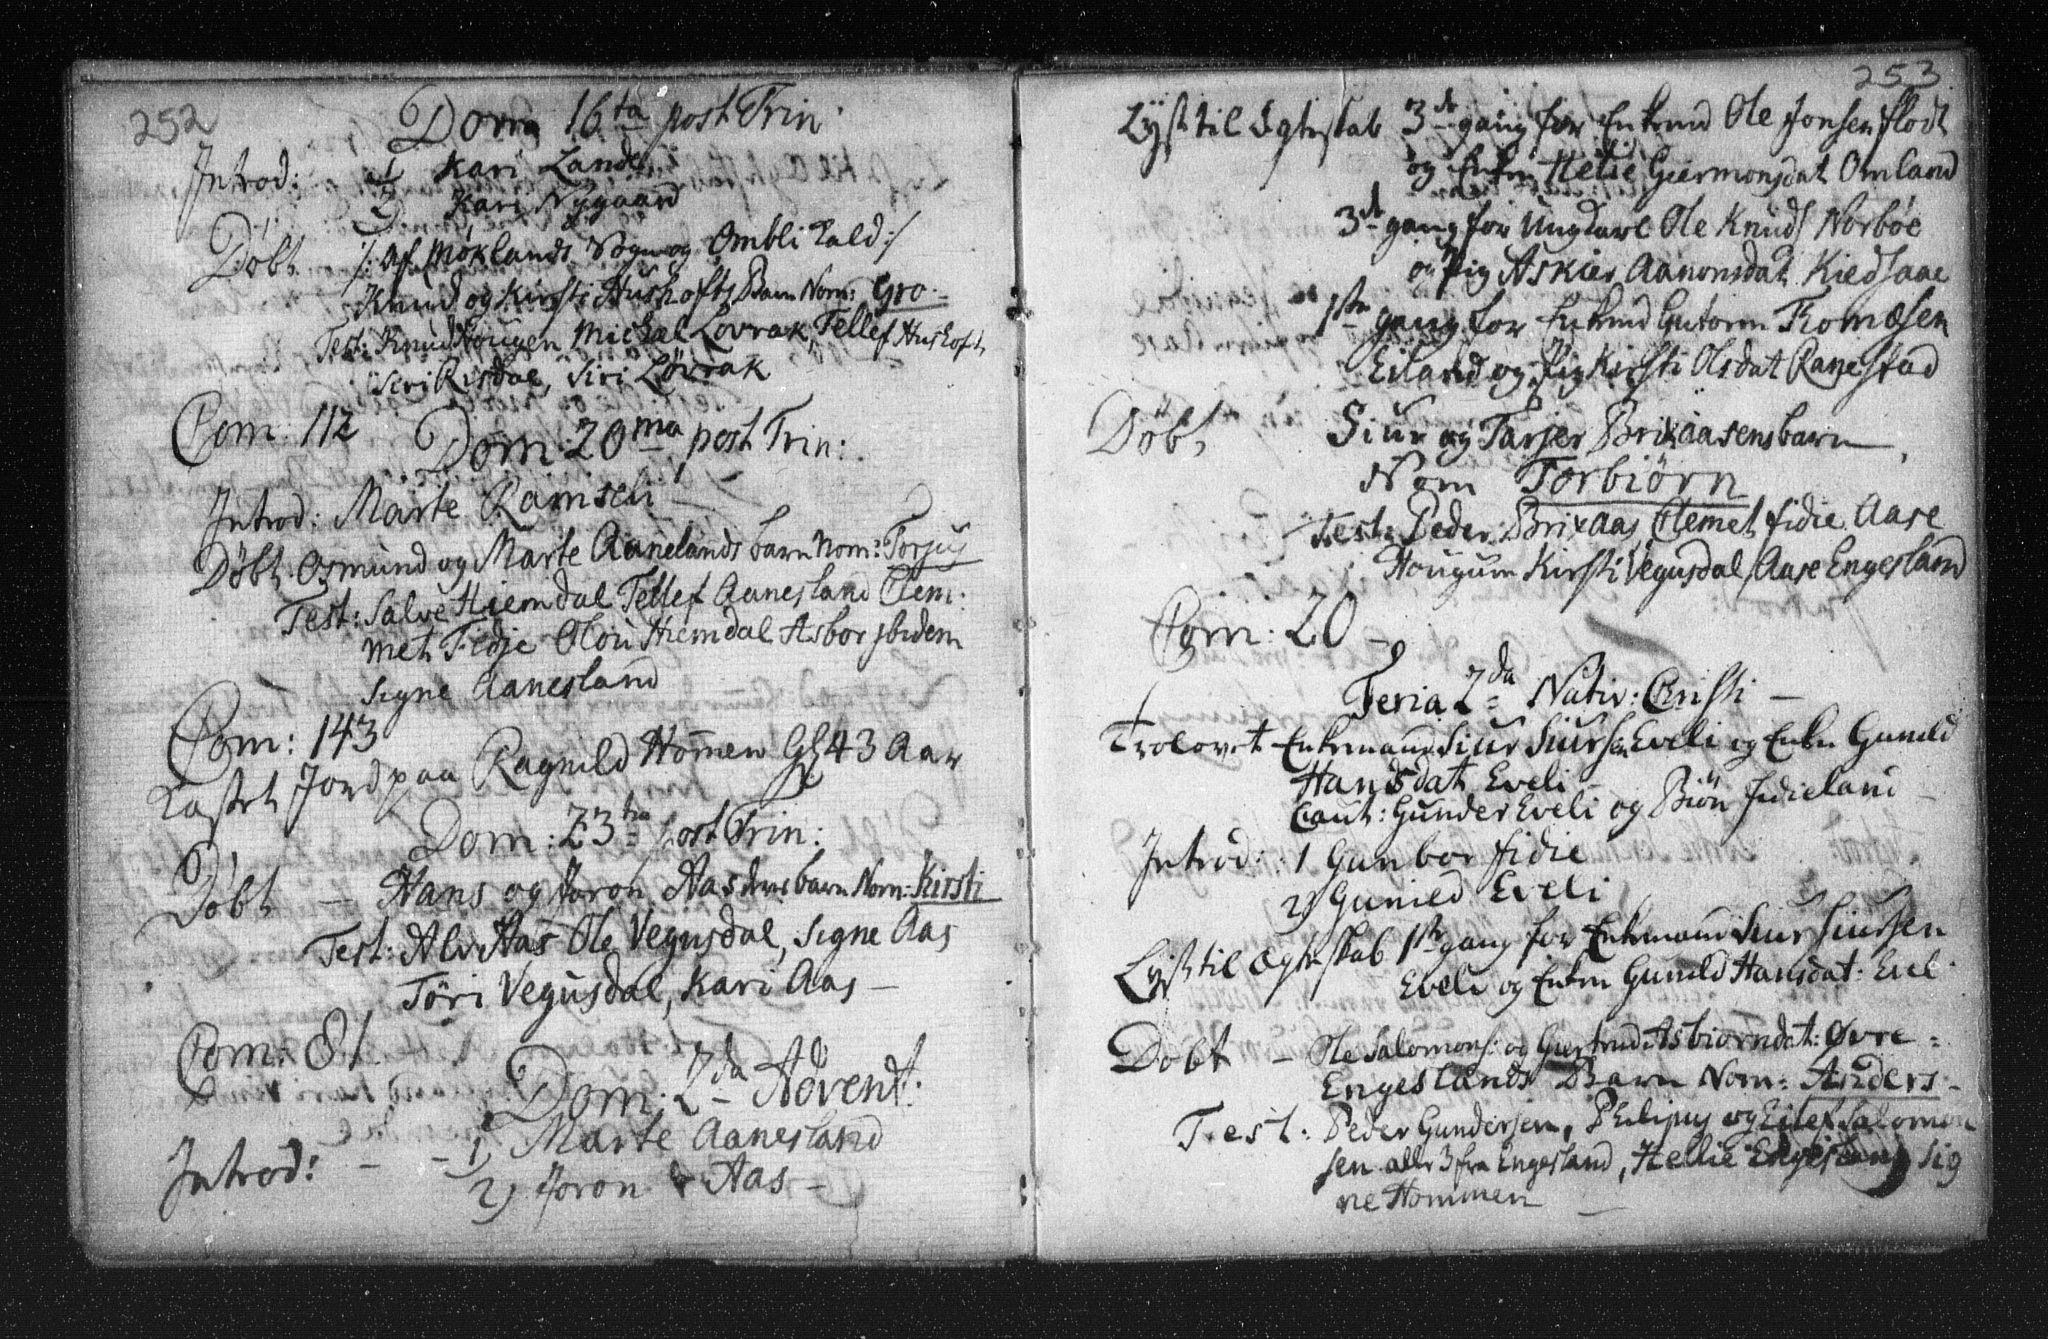 252
Dom 16ta post Trin:
Introd: 1 Kari Lande
2 Kari Nygaard
Døbt /: af Møklands Sogn og Ombli Kald :/
Knud og Kirsti Huskofts Barn Nom: Gro
Test: Knud Hougen Michel Lovrak, Tellef Huskoft
Siri Risdal, Siri Løvrak
Com: 112
Dom: 20ma post Trin:
Introd: Marte Ramseli
Døbt Osmund og Marte Aanelands barn Nom: Torjus
Test: Salve Hiemdal Tellef Aanesland Clem
met Fidje Olou Hiemdal Asbor ibidem
Signe Aanesland
Com: 143
Kastet Jord paa Ragnild Hommen Gl 43 Aar
Dom: 23tia post Trin:
Døbt – Hans og Joron Aas deres barn Nom: Kirsti
Test: Alv Aas Ole Vegusdal, Signe Aas
Töri Vegusdal, Kari Aas –
Com: 81
Dom: 2da Advent:
Introd: – – 1, Marte Aanesland
2, Joron Aas –
253
Lyst til Egteskab 3de gang for Enkemd Ole Jonsen Flodt
og Enken Helie Giermonsdat Omland
3de gang for Ungkarl Ole Knuds Norbøe
og Pig Askier Aanonsdat Kiedsaae
1ste gang for Enkemd Gutorm Tomæsen
Eiland og Pig Kirsti Olsdat Ranestad
Døbt Siur og Tarjer Brixaasens barn
Nom Torbiörn
Test: Peder Brixaas, Clemet Fidie Aase
Hougum Kirsti Vegusdal, Aase Engesland
Com: 20 –
Feria 2da Nativ: Christi –
Trolovet Enkemand Siur Siursen Eveli og Enken Gunild
Hansdat Eveli –
Caut: Gunder Eveli og Biön Fidieland –
Introd: 1 Gunbor Fidie
2, Gunild Eveli
Lyst til Ægteskab 1ste gang for Enkemand Siur Siursen
Eveli og Enken Gunild Hansdat: Eveli
Døbt – Ole Salomons: og Giertrud Asbiorndat: Øvre =
Engeslands Barn Nom: Anders –
Test: Peder Gundersen, Philipus og Eilef Salomon
sen alle 3 fra Engesland, Hellie Engesland Sig
ne Hommen –